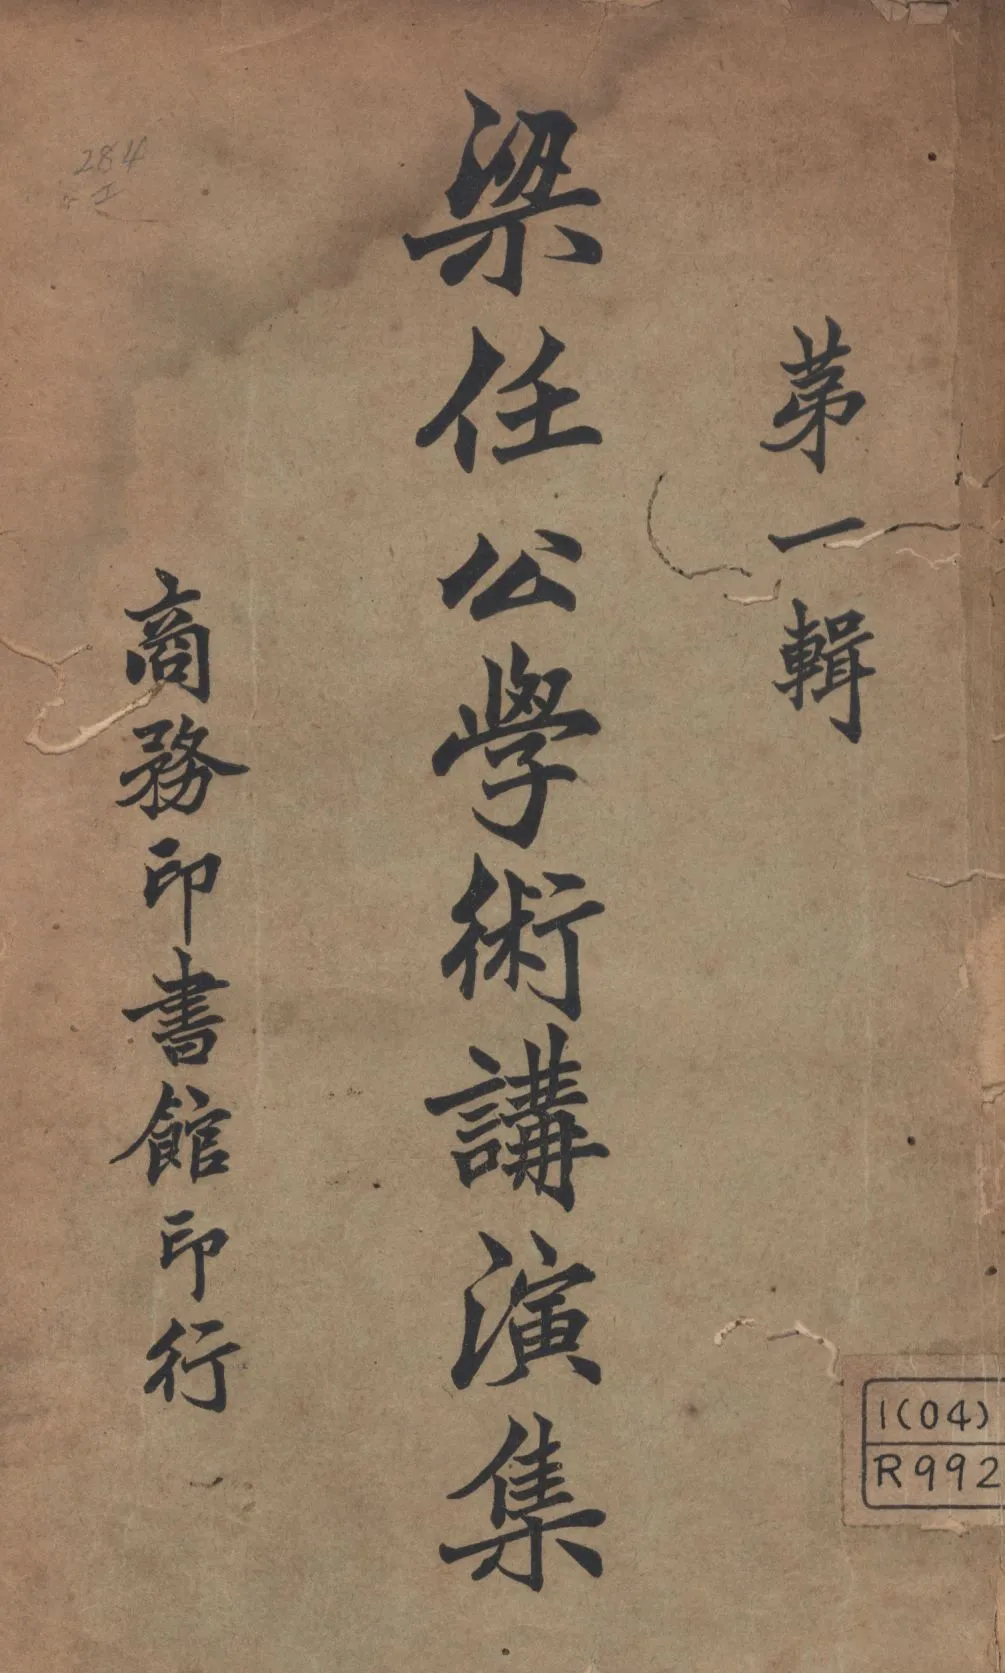 第一輯
梁任公學術講演集
商務印書館印行
284
1(04)
R992